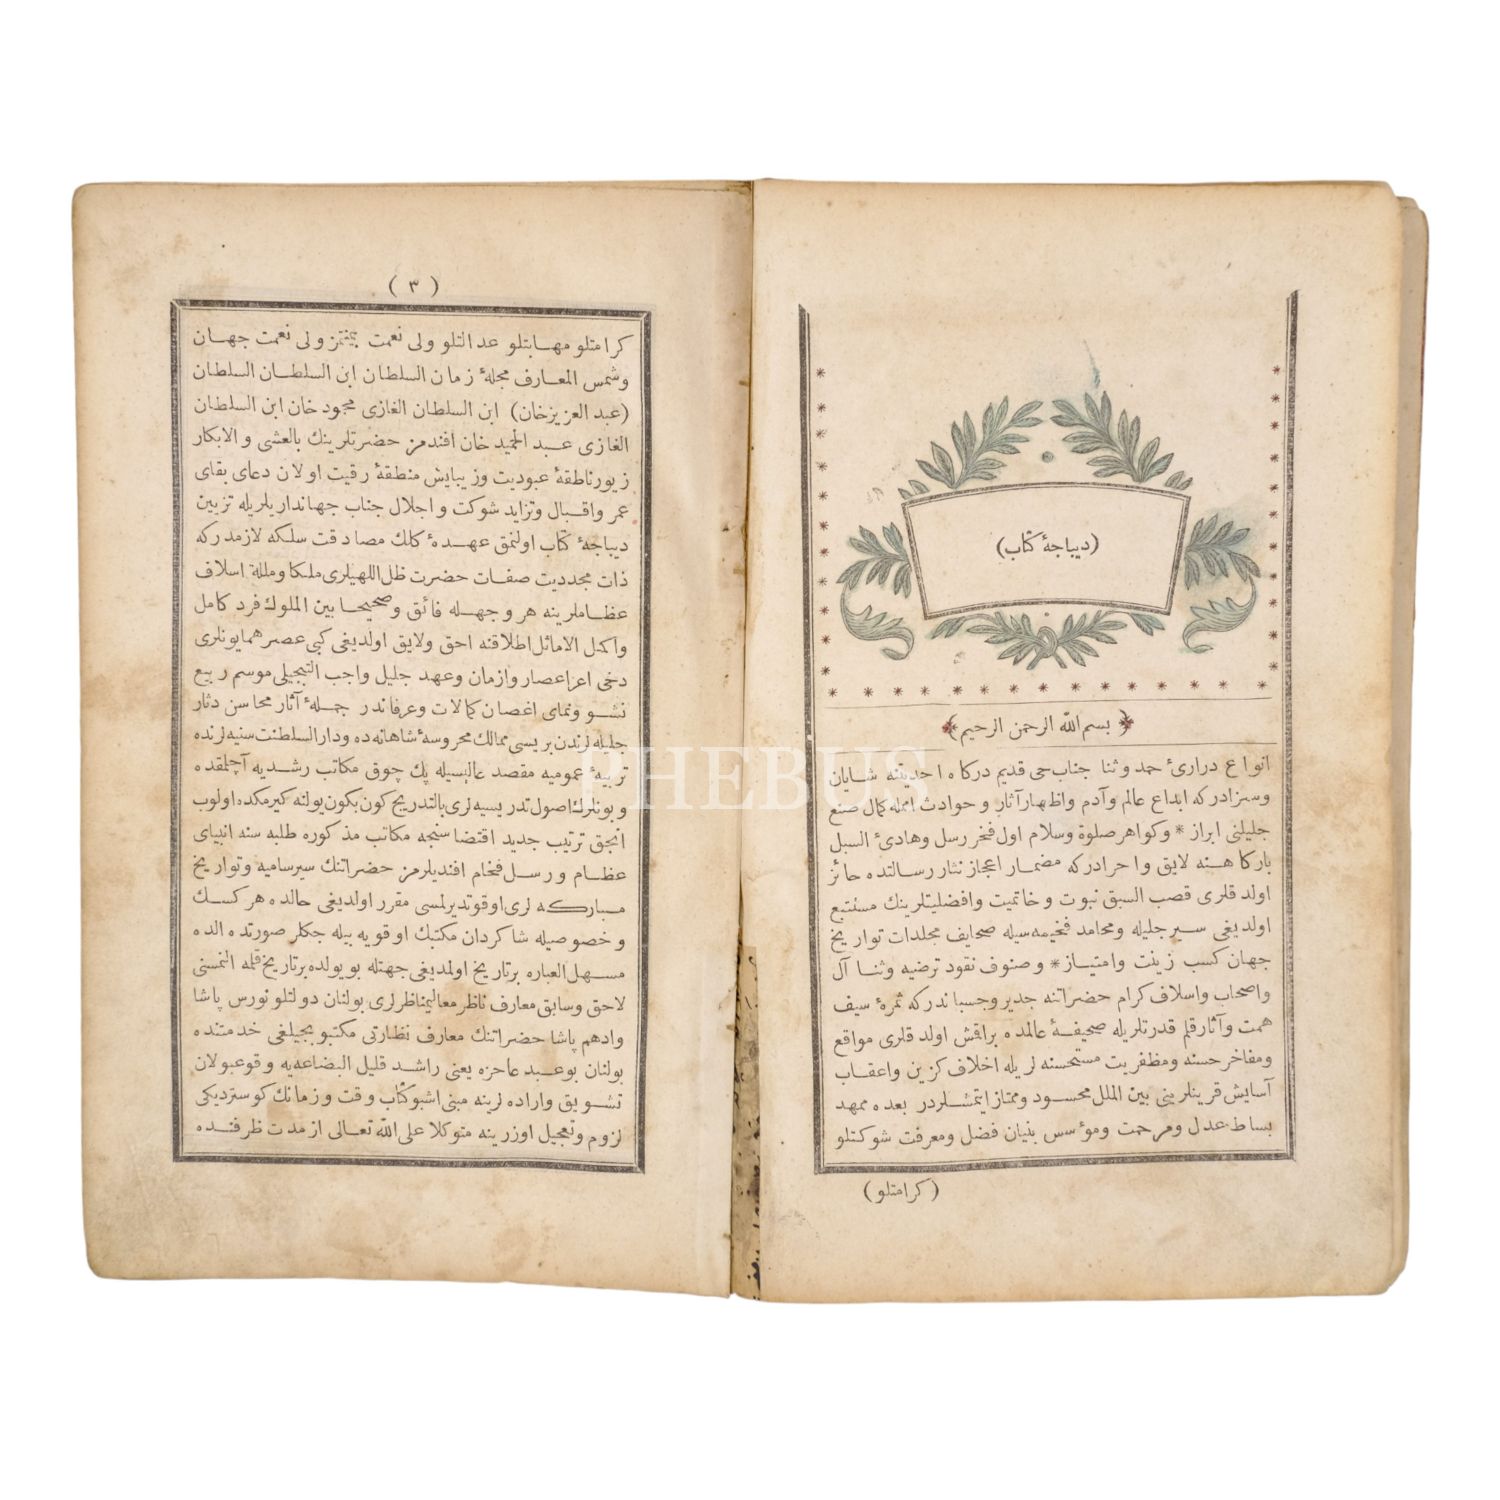 (ديباجهٔ كتاب)
بسم الله الرحمن الرحيم
انواع درارئ حمد وثنا جناب حى قديم دركاه احديتنه شايان
وسزادركه ابداع عالم وآدم واظهار آثار وحوادث امله كمال صنع
جليلنى ابراز * وكواهر صلوة وسلام اول فخر رسل وهادئ السبل
باركاهنه لايق واحرادركه مضمار اعجاز نثار رسالتده حائز
اولدقلرى قصب السبق نبوت وخاتميت وافضليتلرينك مستتبع
اولديغى سير جليله ومحامد فخيمه سيله صحايف مجلدات تواريخ
جهان كسب زينت وامتياز * وصنوف نقود ترضيه وثنا آل
واصحاب واسلاف كرام حضراتنه جدير وجسباندركه ثمرهٔ سيف
همت وآثار قلم قدرتلريله صحيفهٔ عالمده براقش اولدقلرى مواقع
ومفاخر حسنه ومظفريت مستحسنه لريله اخلاف كزين واعقاب
آسايش قرينلرينى بين الملل محسود وممتاز ايتمشلردر بعده ممهد
بساط عدل ومرحمت ومؤسس بنيان فضل ومعرفت شوكتلو
(كرامتلو)
(٣)
كرامتلو مهابتلو عدالتلو ولى نعمت بيمنتمز ولى نعمت جهان
وشمس المعارف مجلهٔ زمان السلطان ابن السلطان السلطان
(عبد العزيزخان) ابن السلطان الغازى محمود خان ابن السلطان
الغازى عبد الحميد خان افندمز حضرتلرينك بالعشى والابكار
زيور ناطقهٔ عبوديت وزيبايش منطقهٔ رقيت اولان دعاى بقاى
عمر واقبال وتزايد شوكت واجلال جناب جهانداريلريله تزيين
ديباجهٔ كتاب اولنمق عهدهٔ كلك مصادقت سلكه لازمدركه
ذات مجدديت صفات حضرت ظل اللهيلرى ملكا وملة اسلاف
عظاملرينه هر وجهله فائق وصحيحا بين الملوك فرد كامل
واكمل الاماثل اطلاقنه احق ولايق اولديغى كبى عصر همايونلرى
دخى اعز اعصار وازمان وعهد جليل واجب التبجيلى موسم ربيع
نشو ونماى اغصان كمالات وعرفاندر جملهٔ آثار محاسن دثار
جليله لرندن بريسى ممالك محروسهٔ شاهانه ده ودار السلطنت سنيه لرنده
تربيهٔ عموميه مقصد عاليسيله پك چوق مكاتب رشديه آچلمقده
وبونلرك اصول تدريسيه لرى بالتدريج كون بكون يولنه كيرمكده اولوب
انجق ترتيب جديد اقتضاسنجه مكاتب مذكوره طلبه سنه انبياى
عظام ورسل فخام افنديلرمز حضراتنك سير ساميه وتواريخ
مباركه لرى اوقوتديرلمسى مقرر اولديغى حالده هر كسك
وخصوصيله شاكردان مكتبك اوقويه بيله جكلر صورتده الده
مسهل العباره بر تاريخ اولمديغى جهتله بو يولده بر تاريخ قلمه النمسنى
لاحق وسابق معارف ناظر معاليمناظرلرى بولنان دولتلو نورس پاشا
وادهم پاشا حضراتنك معارف نظارتى مكتوبجيلغى خدمتنده
بولنان بو عبد عاجزه يعنى راشد قليل البضاعه يه وقوعبولان
تشويق واراده لرينه مبنى اشبو كتاب وقت وزمانك كوسترديكى
لزوم وتعجيل اوزرينه متوكلا على الله تعالى از مدت ظرفنده
PHEBUS